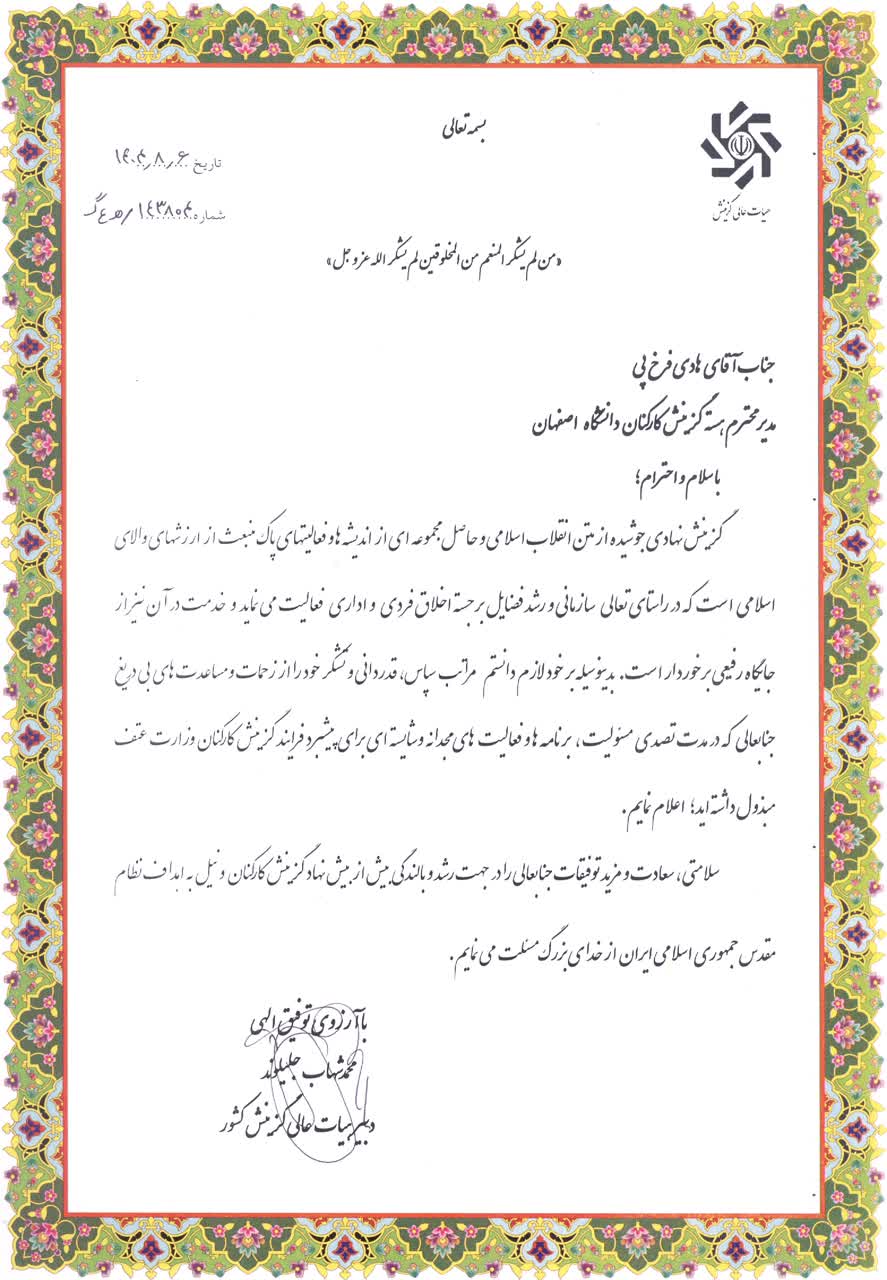 بسمه تعالی
تاریخ ۱۴۰۴/۸/۶
شماره ۱۴۳۸۰۴/هـ ع گ
هیات عالی گزینش
«من لم یشکر المنعم من المخلوقین لم یشکر الله عزوجل»
جناب آقای هادی فرخ پی
مدیر محترم هسته گزینش کارکنان دانشگاه اصفهان
با سلام و احترام؛
گزینش نهادی جوشیده از متن انقلاب اسلامی و حاصل مجموعه ای از اندیشه ها و فعالیتهای پاک منبعث از ارزشهای والای
اسلامی است که در راستای تعالی سازمانی و رشد فضایل برجسته اخلاق فردی و اداری فعالیت می نماید و خدمت در آن نیز از
جایگاه رفیعی برخوردار است. بدینوسیله بر خود لازم دانستم مراتب سپاس، قدردانی و تشکر خود را از زحمات و مساعدت های بی دریغ
جنابعالی که در مدت تصدی مسئولیت، برنامه ها و فعالیت های مجدانه و شایسته ای برای پیشبرد فرایند گزینش کارکنان وزارت عتف
مبذول داشته اید؛ اعلام نمایم.
سلامتی، سعادت و مزید توفیقات جنابعالی را در جهت رشد و بالندگی بیش از بیش نهاد گزینش کارکنان و نیل به اهداف نظام
مقدس جمهوری اسلامی ایران از خدای بزرگ مسئلت می نمایم.
با آرزوی توفیق الهی
محمد شهاب جلیلوند
دبیر هیات عالی گزینش کشور